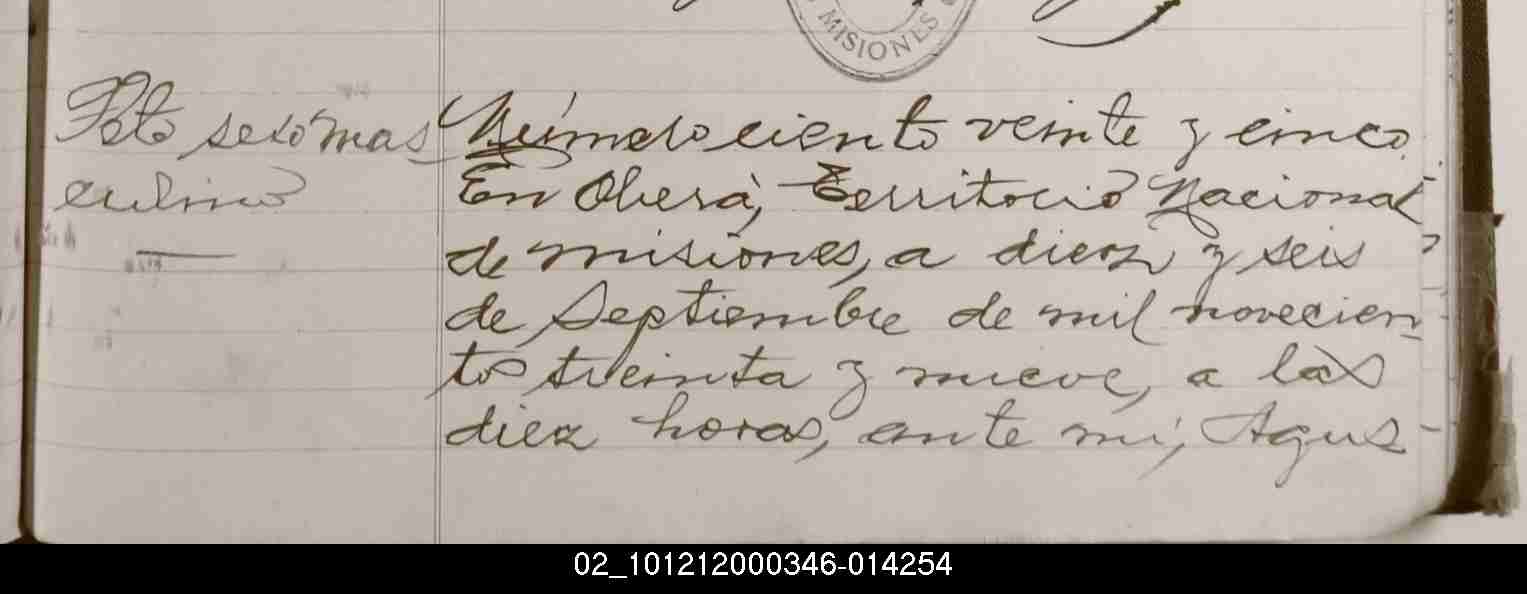 MISIONES
Feto sexo mas
culino
Número ciento veinte y cinco.
En Oberá, Territorio Nacional
de misiones, a diez y seis
de Septiembre de mil novecien
tos treinta y nueve, a las
diez horas, ante mi, Agus
02_101212000346-014254